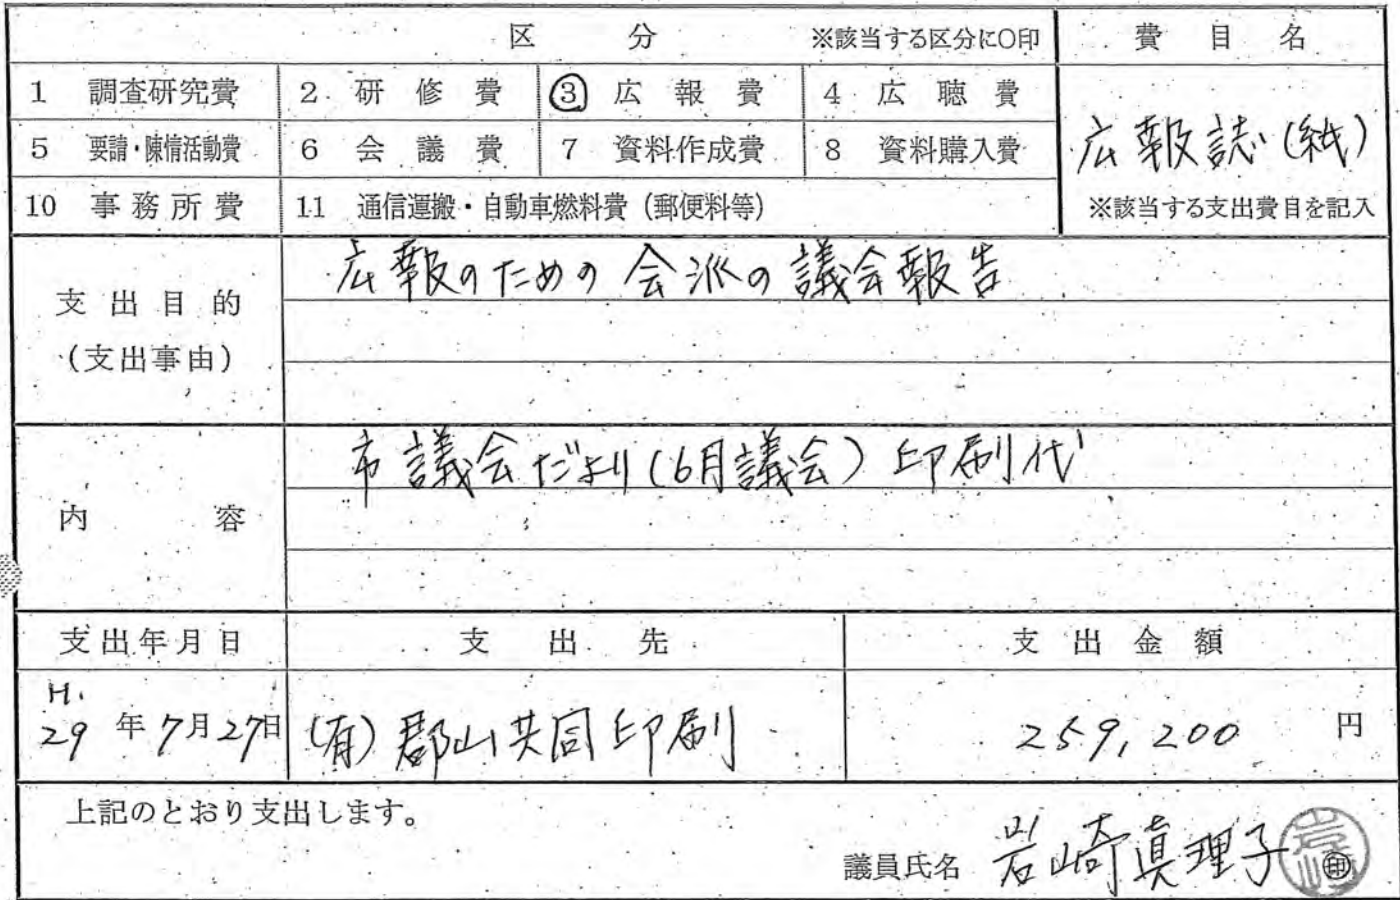 区分 ※該当する区分に○印 費目名
1 調査研究費 2 研修費 ③ 広報費 4 広聴費
5 要請・陳情活動費 6 会議費 7 資料作成費 8 資料購入費
広報誌(紙)
10 事務所費 11 通信運搬・自動車燃料費(郵便料等)
※該当する支出費目を記入
支出目的
(支出事由)
広報のための会派の議会報告
内容
市議会だより(6月議会)印刷代
支出年月日 支出先 支出金額
H.
29年7月27日 (有)郡山共同印刷 259,200 円
上記のとおり支出します。
議員氏名 岩崎真理子 ㊞
岩崎